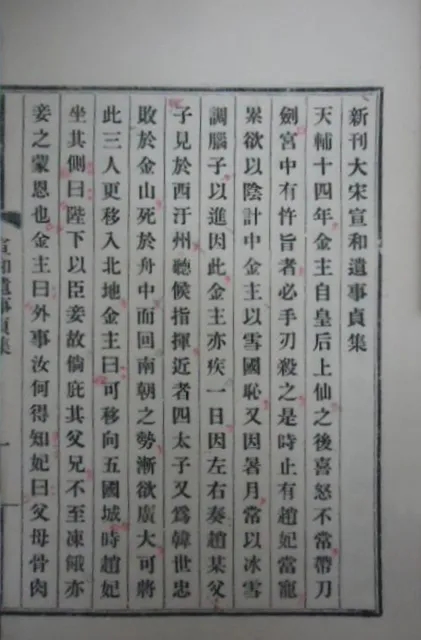 新刊大宋宣和遺事貞集
天輔十四年金主自皇后上仙之後喜怒不常帶刀
劍宮中有忤旨者必手刃殺之是時止有趙妃當寵
累欲以陰計中金主以雪國恥又因暑月常以冰雪
調腦子以進因此金主亦疾一日因左右奏趙某父
子見於西汙州聽候指揮近者四太子又爲韓世忠
敗於金山死於舟中而回南朝之勢漸欲廣大可將
此三人更移入北地金主曰可移向五國城時趙妃
坐其側曰陛下以臣妾故倘庇其父兄不至凍餓亦
妾之蒙恩也金主曰外事汝何得知妃曰父母骨肉
宣和遺事貞集
一